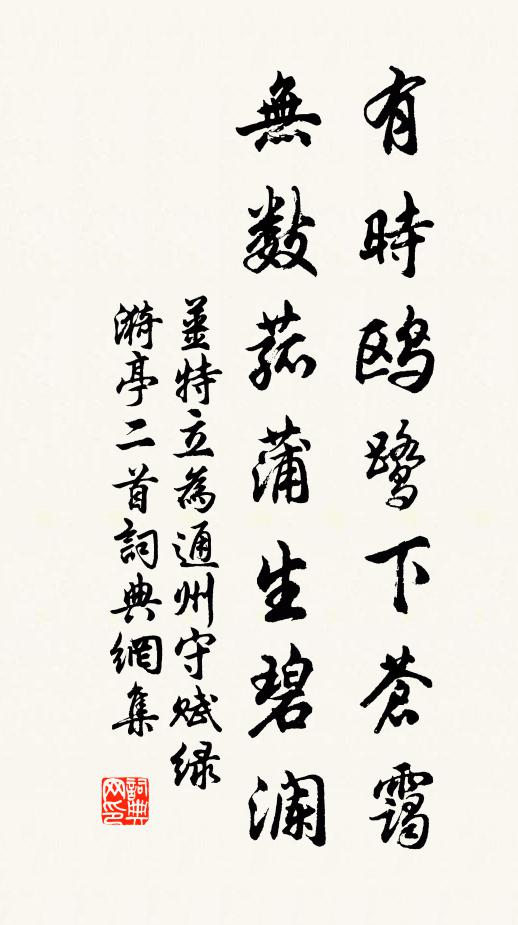 有時鷗鷺下蒼靄
無数菰蒲生碧瀾
姜特立為通州守賦緑
漪亭二首詞典網集
詞典网印